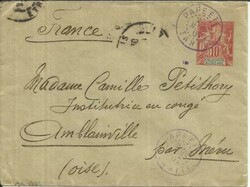 France
Madame Camille Petithory
Institutrice en congé
Amblainville
par Méru
(Oise)
PAPEETE
10